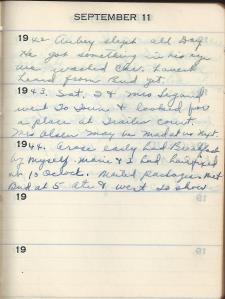 SEPTEMBER 11
1942 Aubrey slept all Day
He got something in his eye
we washed Car. Havent
heard from Bud yet.
1943. Sat, I & Mrs
went to Town & looked for
a place at Trailer court.
Mrs Olsen may be mad at us
1944. Arose early had Breakfast
by myself. Marie & I had hair fixed
at 10 Oclock. Mailed packages. Met
Bud at 5 ate & went to show
19
19